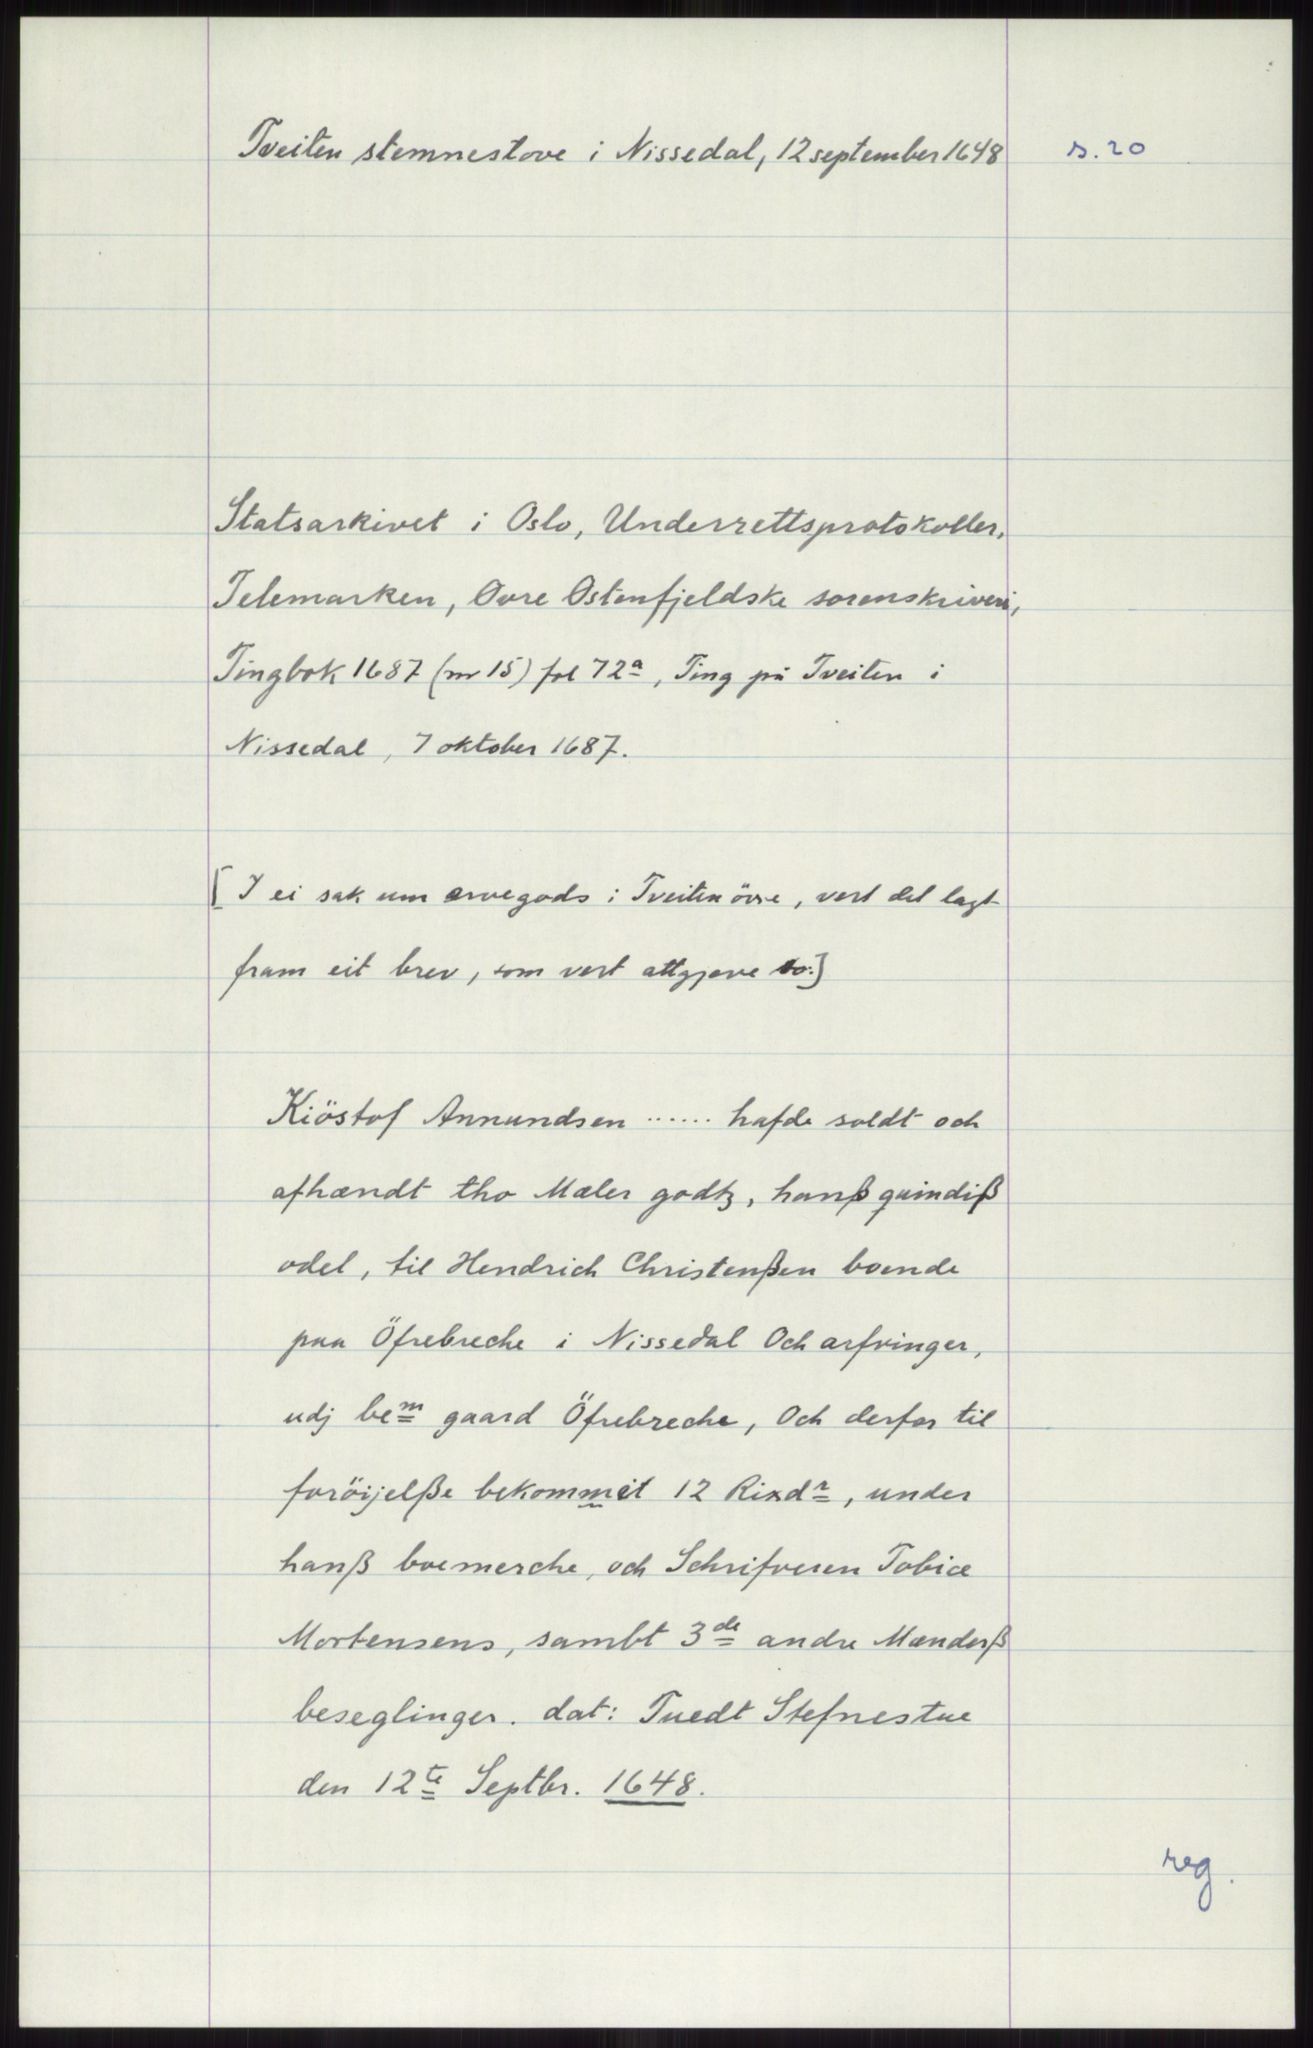 Tveiten stemnestove i Nissedal, 12 september 1648
s. 20
Statsarkivet i Oslo, Underrettsprotokoller,
Telemarken, Øvre Østenfjeldske sorenskriveri,
Tingbok 1687 (nr 15) fol 72a, Ting på Tveiten i
Nissedal, 7 oktober 1687.
[I ei sak um arvegods i Tveiten övre, vert det lagt
fram eit brev, som vert attgjeve so:]
Kiöstof Annundsen ...... hafde soldt och
afhændt tho Mæler godtz, hanß quindiß
odel, til Hendrich Christenßen boende
paa Öfrebreche i Nissedal Och arfvinger,
udj bem gaard Öfrebreche, Och derfor til
foröijelße bekommet 12 Rixdr, under
hanß boemerche, och Schrifveren Tobiæ
Mortensens, sambt 3de andre Mænderß
beseglinger. dat: Tuedt Stefnestue
den 12te Septbr. 1648.
reg.